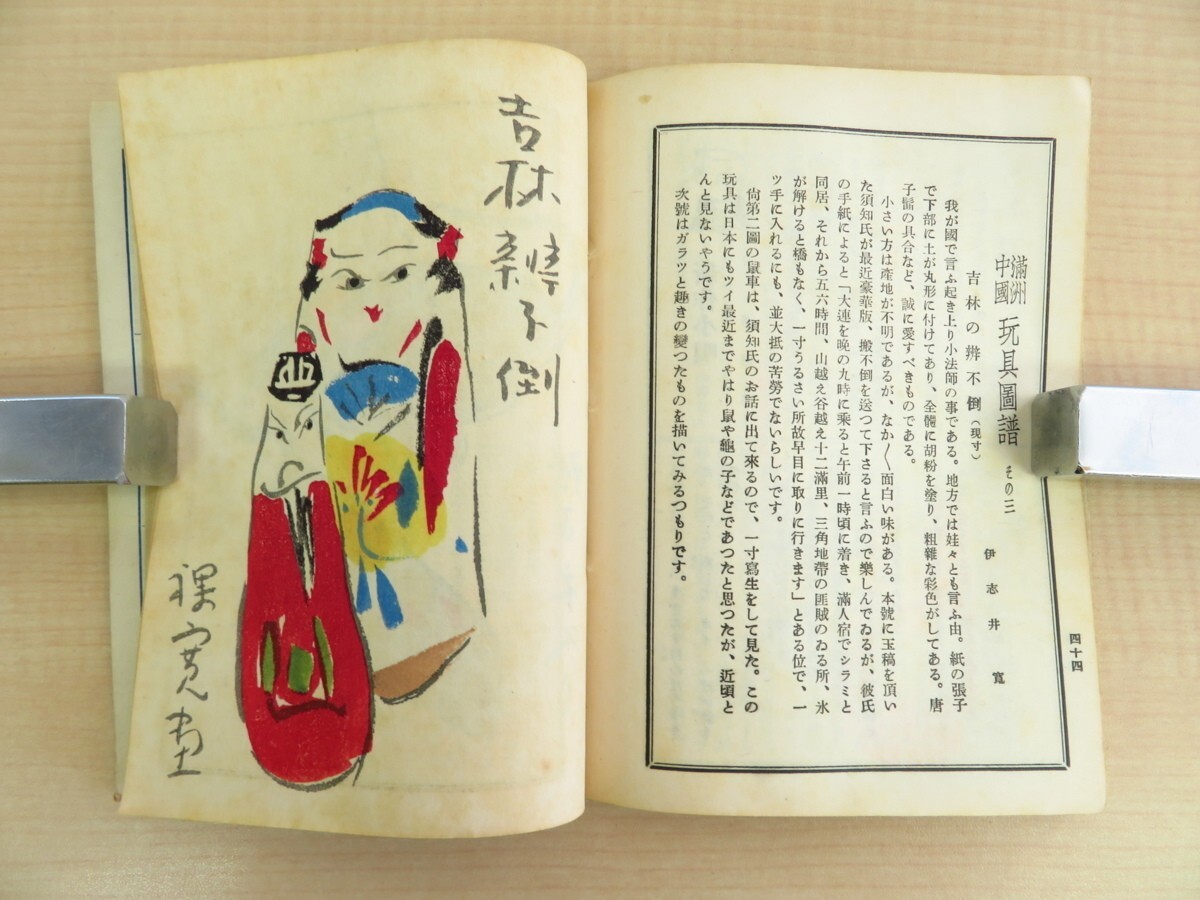 滿洲
中國
玩具圖譜 その三
伊志井 寬
吉林の搬不倒(現寸)
我が國で言ふ起き上り小法師の事である。地方では娃々とも言ふ由。紙の張子
で下部に土が丸形に付けてあり、全體に胡粉を塗り、粗雜な彩色がしてある。唐
子髷の具合など、誠に愛すべきものである。
小さい方は產地が不明であるが、なか〱面白い味がある。本號に玉稿を頂い
た須知氏が最近豪華版、搬不倒を送つて下さると言ふので樂しんでゐるが、彼氏
の手紙によると「大連を晚の九時に乘ると午前一時頃に着き、滿人宿でシラミと
同居、それから五六時間、山越え谷越え十二滿里、三角地帶の匪賊のゐる所、氷
が解けると橋もなく、一寸うるさい所故早目に取りに行きます」とある位で、一
ツ手に入れるにも、並大抵の苦勞でないらしいです。
尙第二圖の鼠車は、須知氏のお話に出て來るので、一寸寫生をして見た。この
玩具は日本にもツイ最近までやはり鼠や龜の子などであつたと思つたが、近頃と
んと見ないやうです。
次號はガラツと趣きの變つたものを描いてみるつもりです。
四十四
吉林
子倒
寬画